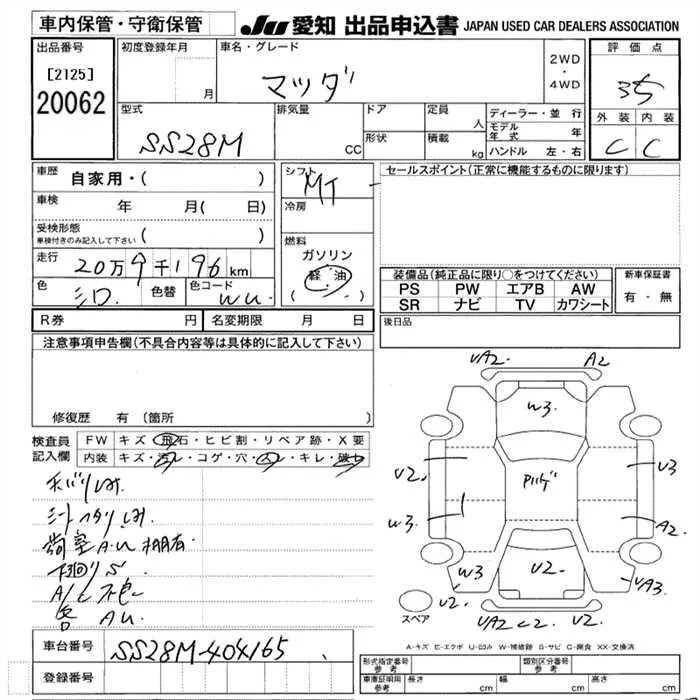 車内保管・守衛保管
JU 愛知 出品申込書 JAPAN USED CAR DEALERS ASSOCIATION
出品番号
[2125]
20062
初度登録年月
月
車名・グレード
マツダ
2WD
・
4WD
評価点
35
外装 内装
C C
型式
SS28M
排気量
CC
ドア
形状
定員
人
積載
kg
ディーラー・並行
モデル年式 年
ハンドル 左・右
車歴 自家用・( )
車検 年 月( 日)
受検形態
車検付きのみ記入して下さい ( )
走行 20万9千196km
色 シロ 色替 色コード
シフト MT
冷房
燃料
ガソリン
軽油
( )
セールスポイント(正常に機能するものに限ります)
装備品(純正品に限り○をつけてください)
PS PW エアB AW
SR ナビ TV カワシート
新車保証書
有・無
R券 円 名変期限 月 日
後日品
注意事項申告欄(不具合内容等は具体的に記入して下さい)
修復歴 有(箇所 )
検査員記入欄
FW キズ・飛石・ヒビ割・リペア跡・X要
内装 キズ・汚レ・コゲ・穴・スレ・キレ・破レ
シートヘタリ
荷室A.U 棚有
下廻りS
A/C不良
A.U
UA2. A2
W3.
U2. U3
W3. A2
W3 U2.
U2. UA3.
UA2 U2.
スペア
A-キズ E-エクボ U-凹み W-補修跡 S-サビ C-腐食 XX-交換済
車台番号 SS28M-404165
登録番号
形式指定番号
参考
類別区分番号
車庫証明用
参考
長さ cm
幅 cm
高さ cm